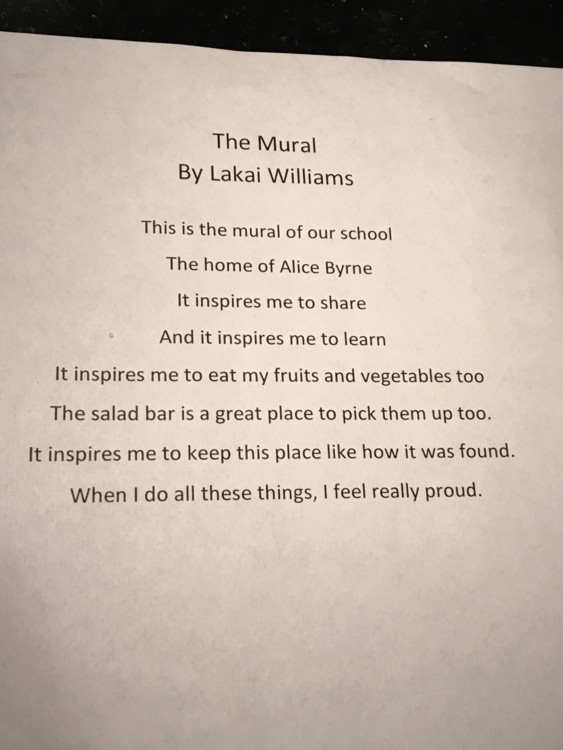 The Mural
By Lakai Williams
This is the mural of our school
The home of Alice Byrne
It inspires me to share
And it inspires me to learn
It inspires me to eat my fruits and vegetables too
The salad bar is a great place to pick them up too.
It inspires me to keep this place like how it was found.
When I do all these things, I feel really proud.